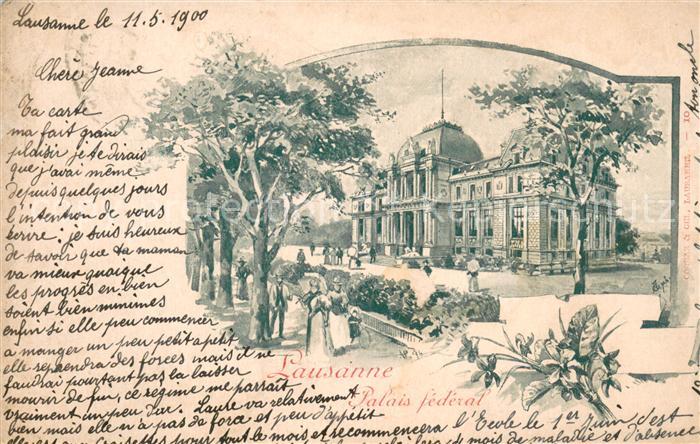 Lausanne le 11.5.1900
Chère Jeanne
Ta carte
ma fait grand
plaisir je te dirais
que j'avai même
depuis quelques jours
l'intention de vous
écrire; je suis heureux
de savoir que ta maman
va mieux quoique
les progrès en bien
soient bien minimes
enfin si elle peu commencer
a manger un peu petit a petit
elle reprendra des forces mais il ne
faudrai pourtant pas la laisser
mourir de fin, ce régime me parrait
vraiment un peu dur. Laure va relativement
bien mais elle n'a pas de force et peu d'appétit
pour tout le mois et recommencera l'Ecole le 1er Juin, c'est
mois de maladie et d'absence
Lausanne
Palais fédéral
mon oncle